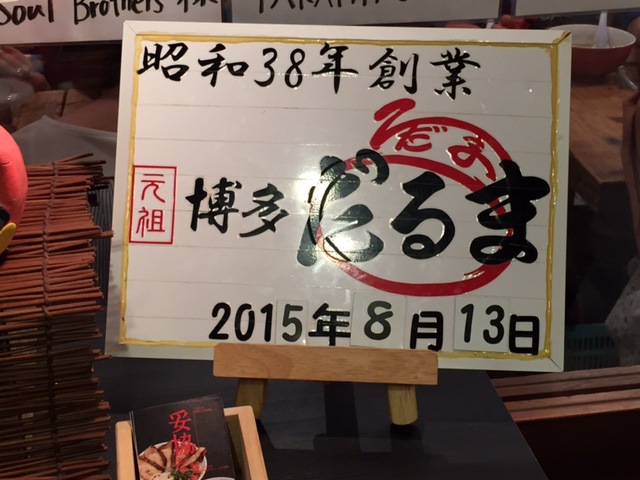 Soul Brothers 様
昭和38年創業
ひだま
元祖
博多だるま
2015年8月13日
妥協